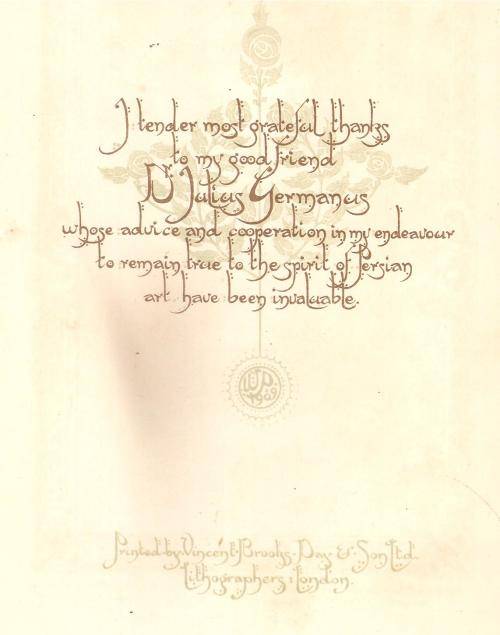 I tender most grateful thanks
to my good friend
Dr Julius Germanus
whose advice and cooperation in my endeavour
to remain true to the spirit of Persian
art have been invaluable.
WP
1909
Printed by Vincent Brooks Day & Son Ltd.
Lithographers : London.